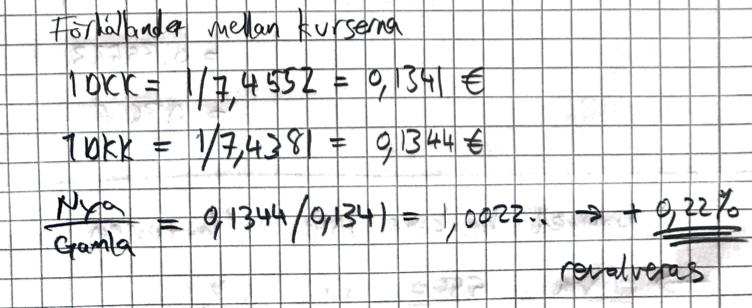 Förhållandet mellan kurserna
1 DKK = 1/7,4552 = 0,1341 €
1 DKK = 1/7,4381 = 0,1344 €
Nya
Gamla = 0,1344/0,1341 = 1,0022.. → + 0,22%
revalveras